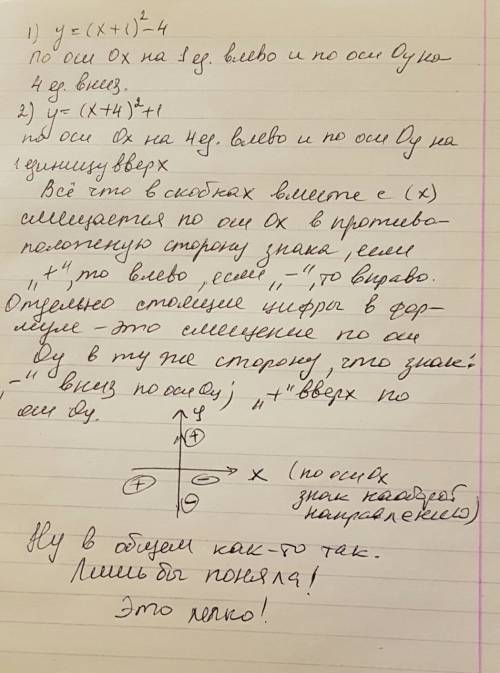 1) y=(x+1)²-4
по оси Ox на 1 ед. влево и по оси Oy на
4 ед. вниз.
2) y=(x+4)²+1
по оси Ox на 4 ед. влево и по оси Oy на
1 единицу вверх
Всё что в скобках вместе с (x)
смещается по оси Ox в противо-
положеную сторону знака, если
„+“, то влево, если „-“, то вправо.
Отдельно стоящие цифры в фор-
муле – это смещение по оси
Oy в ту же сторону, что знак:
„-“ вниз по оси Oy; „+“ вверх по
оси Oy.
y
+
+ - x (по оси Ox
знак наоборот
- направлению)
Ну в общем как-то так.
Лишь бы поняла!
Это легко!